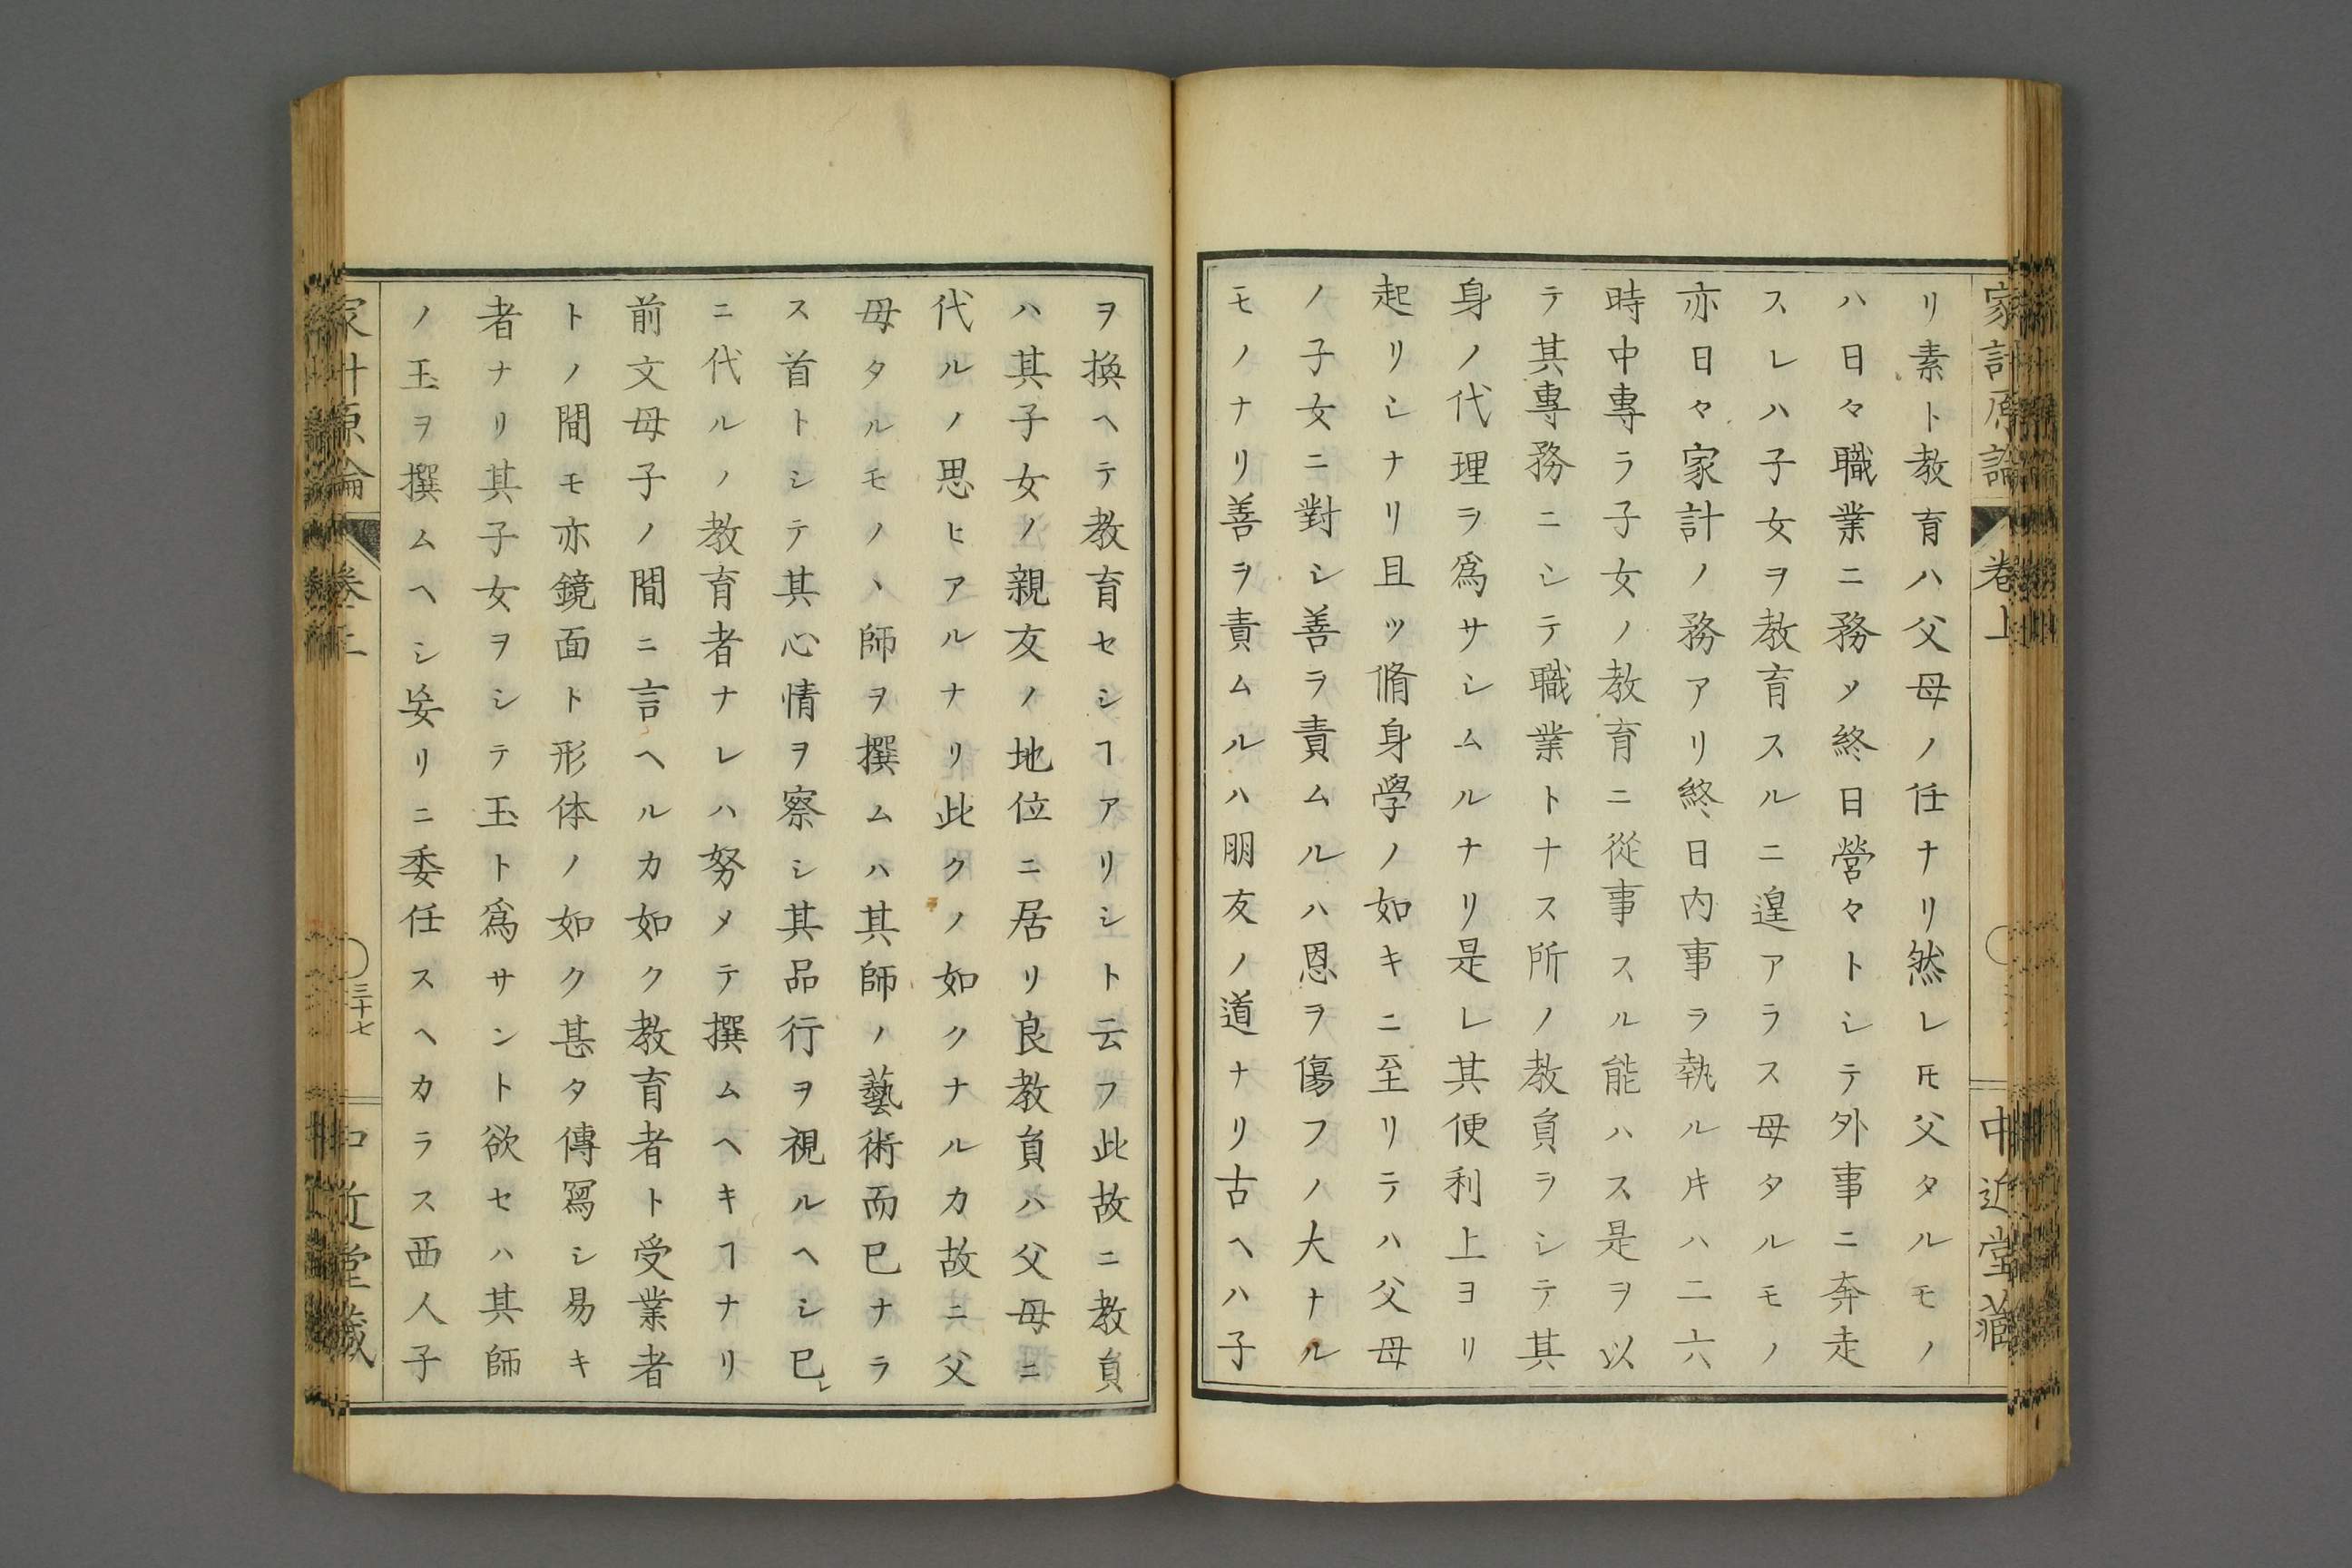 家計原論 卷上 中近堂藏
リ素ト教育ハ父母ノ任ナリ然レ𪜈父タルモノ
ハ日々職業ニ務メ終日營々トシテ外事ニ奔走
スレハ子女ヲ教育スルニ遑アラス母タルモノ
亦日々家計ノ務アリ終日内事ヲ執ルキハ二六
時中專ラ子女ノ教育ニ從事スル能ハス是ヲ以
テ其專務ニシテ職業トナス所ノ教員ヲシテ其
身ノ代理ヲ爲サシムルナリ是レ其便利上ヨリ
起リシナリ且ツ脩身學ノ如キニ至リテハ父母
ノ子女ニ對シ善ヲ責ムルハ恩ヲ傷フノ大ナル
モノナリ善ヲ責ムルハ朋友ノ道ナリ古ヘハ子
ヲ換ヘテ教育セシヿアリシト云フ此故ニ教員
ハ其子女ノ親友ノ地位ニ居リ良教員ハ父母ニ
代ルノ思ヒアルナリ此クノ如クナルカ故ニ父
母タルモノヽ師ヲ撰ムハ其師ノ藝術而已ナラ
ス首トシテ其心情ヲ察シ其品行ヲ視ルヘシ已レ
ニ代ルノ教育者ナレハ努メテ撰ムヘキヿナリ
前文母子ノ間ニ言ヘルカ如ク教育者ト受業者
トノ間モ亦鏡面ト形体ノ如ク甚タ傳寫シ易キ
者ナリ其子女ヲシテ玉ト爲サント欲セハ其師
ノ玉ヲ撰ムヘシ妄リニ委任スヘカラス西人子
家計原論 卷上 三十七 中近堂藏